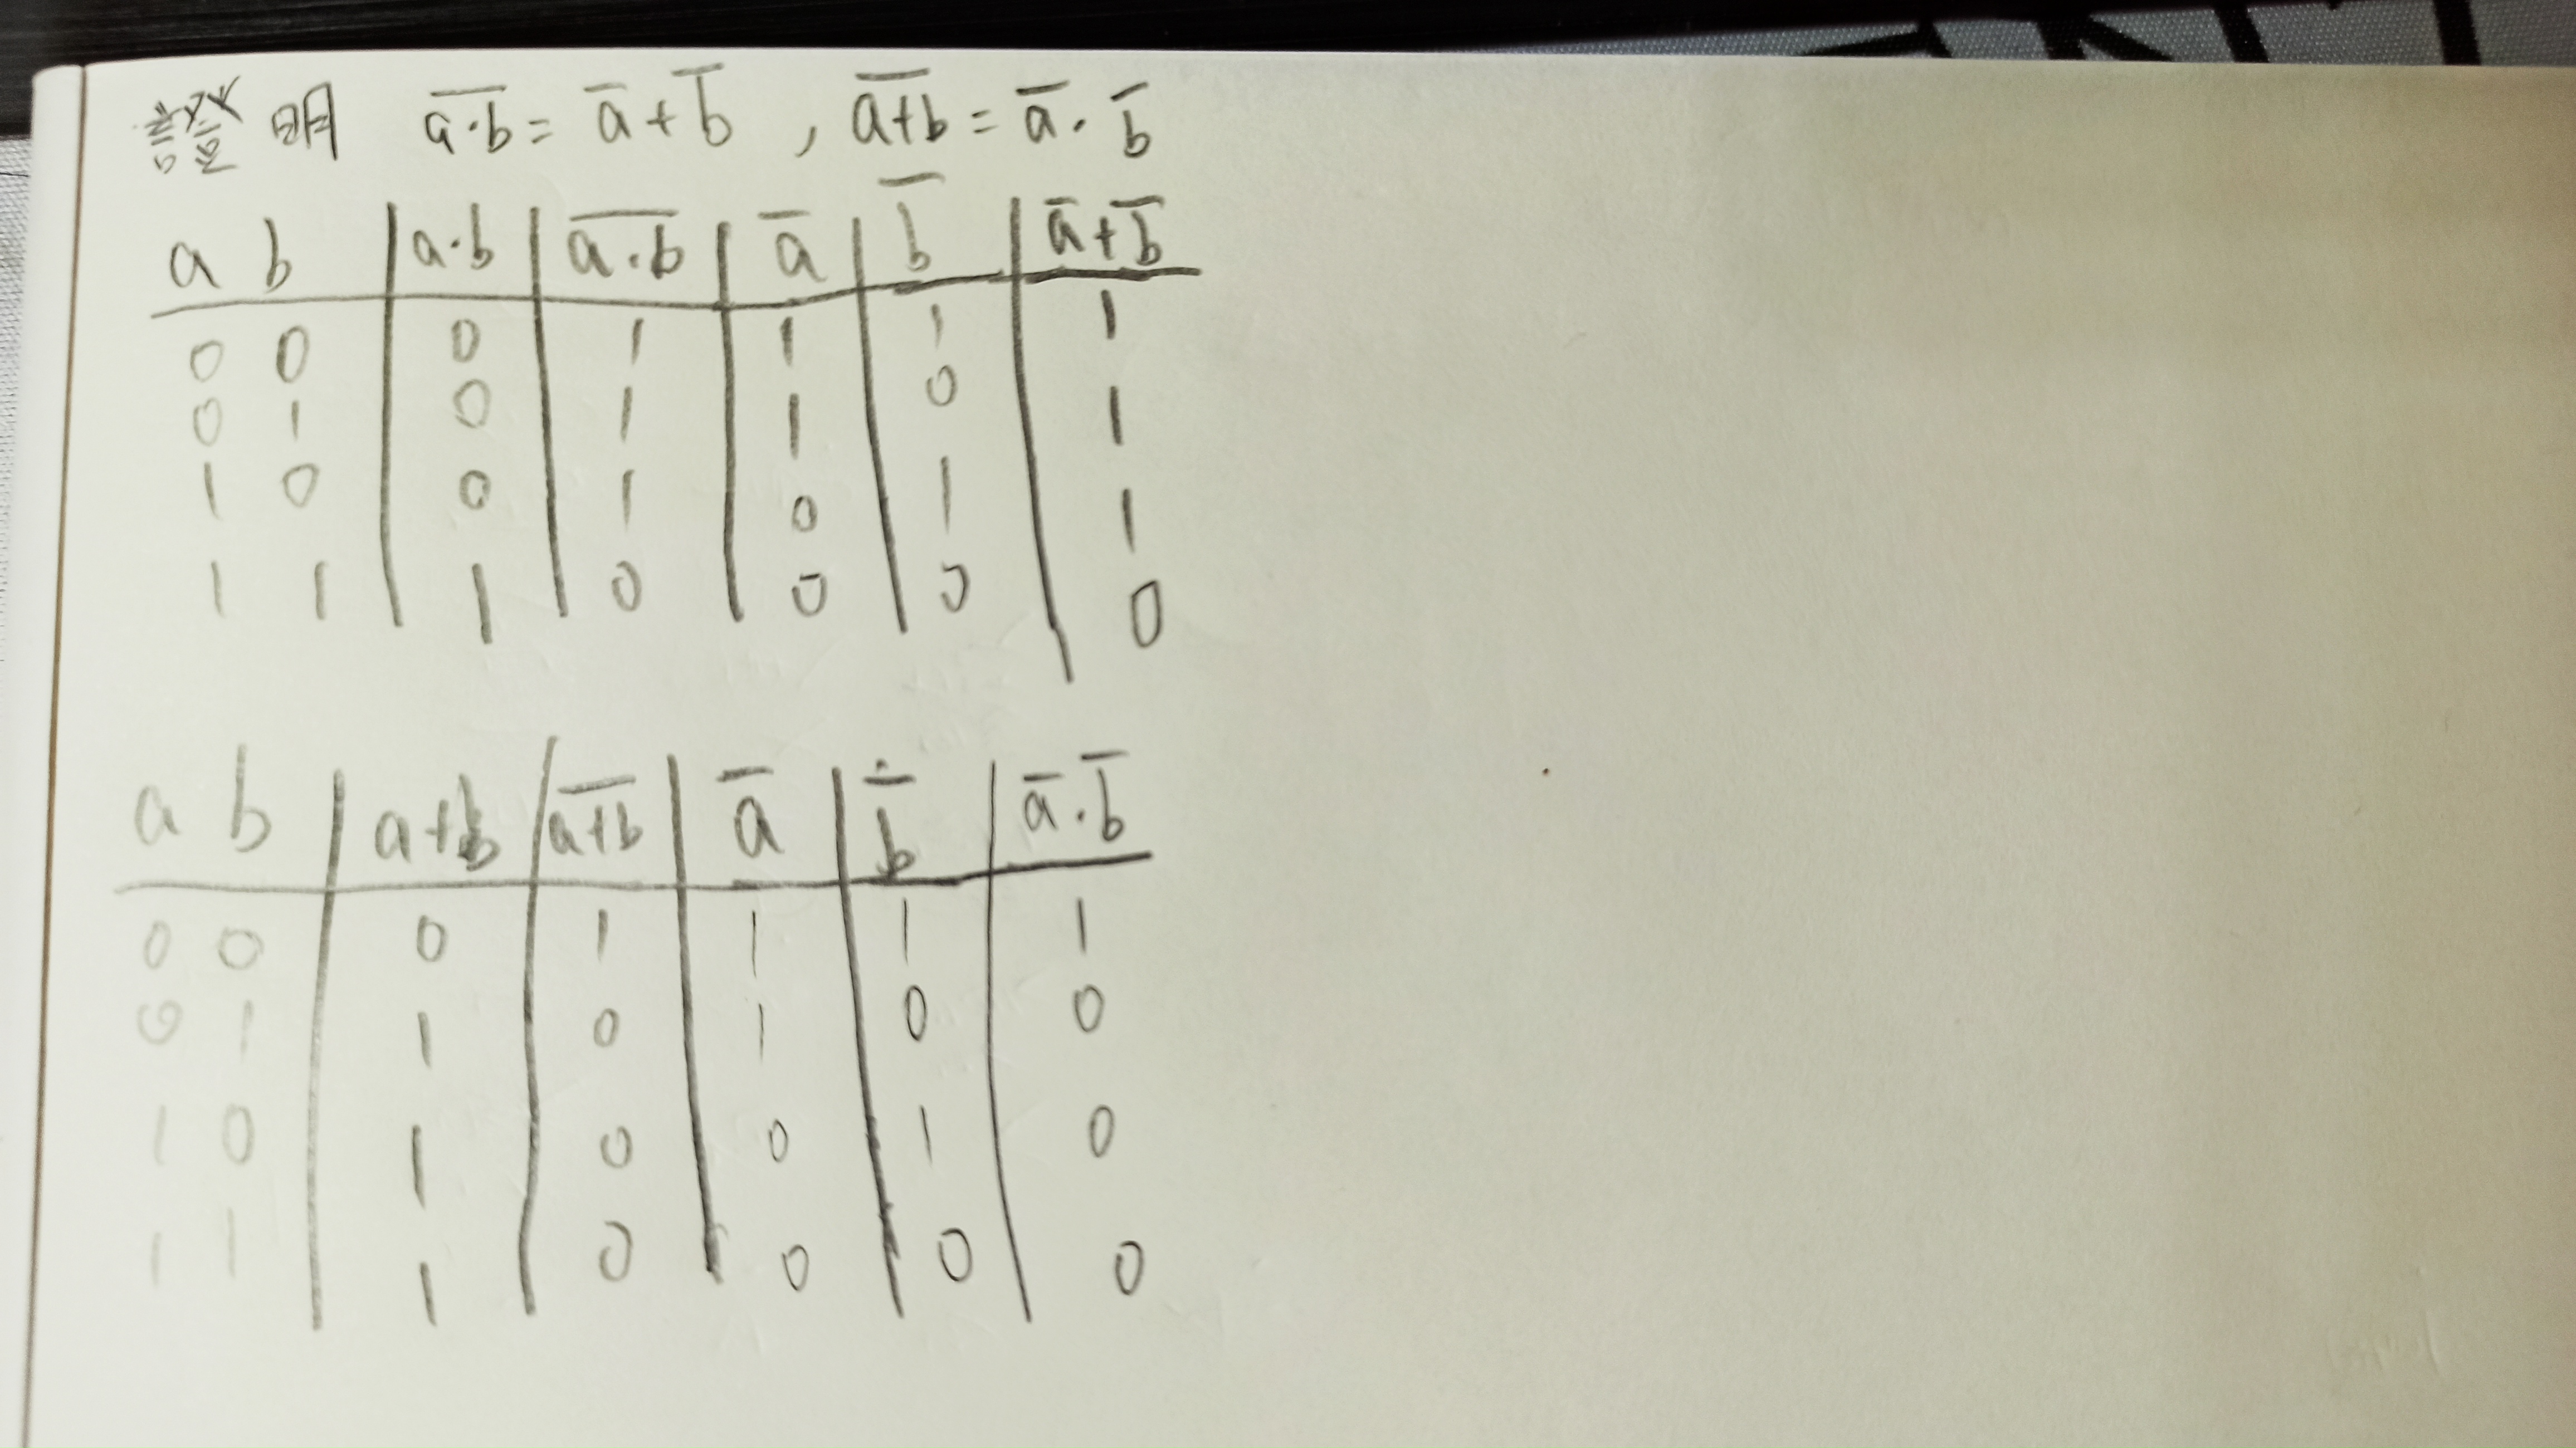 證明 a·b̅ = a̅ + b̅ , a+b̅ = a̅ · b̅
a b | a·b | a̅·̅b̅ | a̅ | b̅ | a̅+b̅
0 0 | 0 | 1 | 1 | 1 | 1
0 1 | 0 | 1 | 1 | 0 | 1
1 0 | 0 | 1 | 0 | 1 | 1
1 1 | 1 | 0 | 0 | 0 | 0
a b | a+b | a̅+̅b̅ | a̅ | b̅ | a̅·b̅
0 0 | 0 | 1 | 1 | 1 | 1
0 1 | 1 | 0 | 1 | 0 | 0
1 0 | 1 | 0 | 0 | 1 | 0
1 1 | 1 | 0 | 0 | 0 | 0